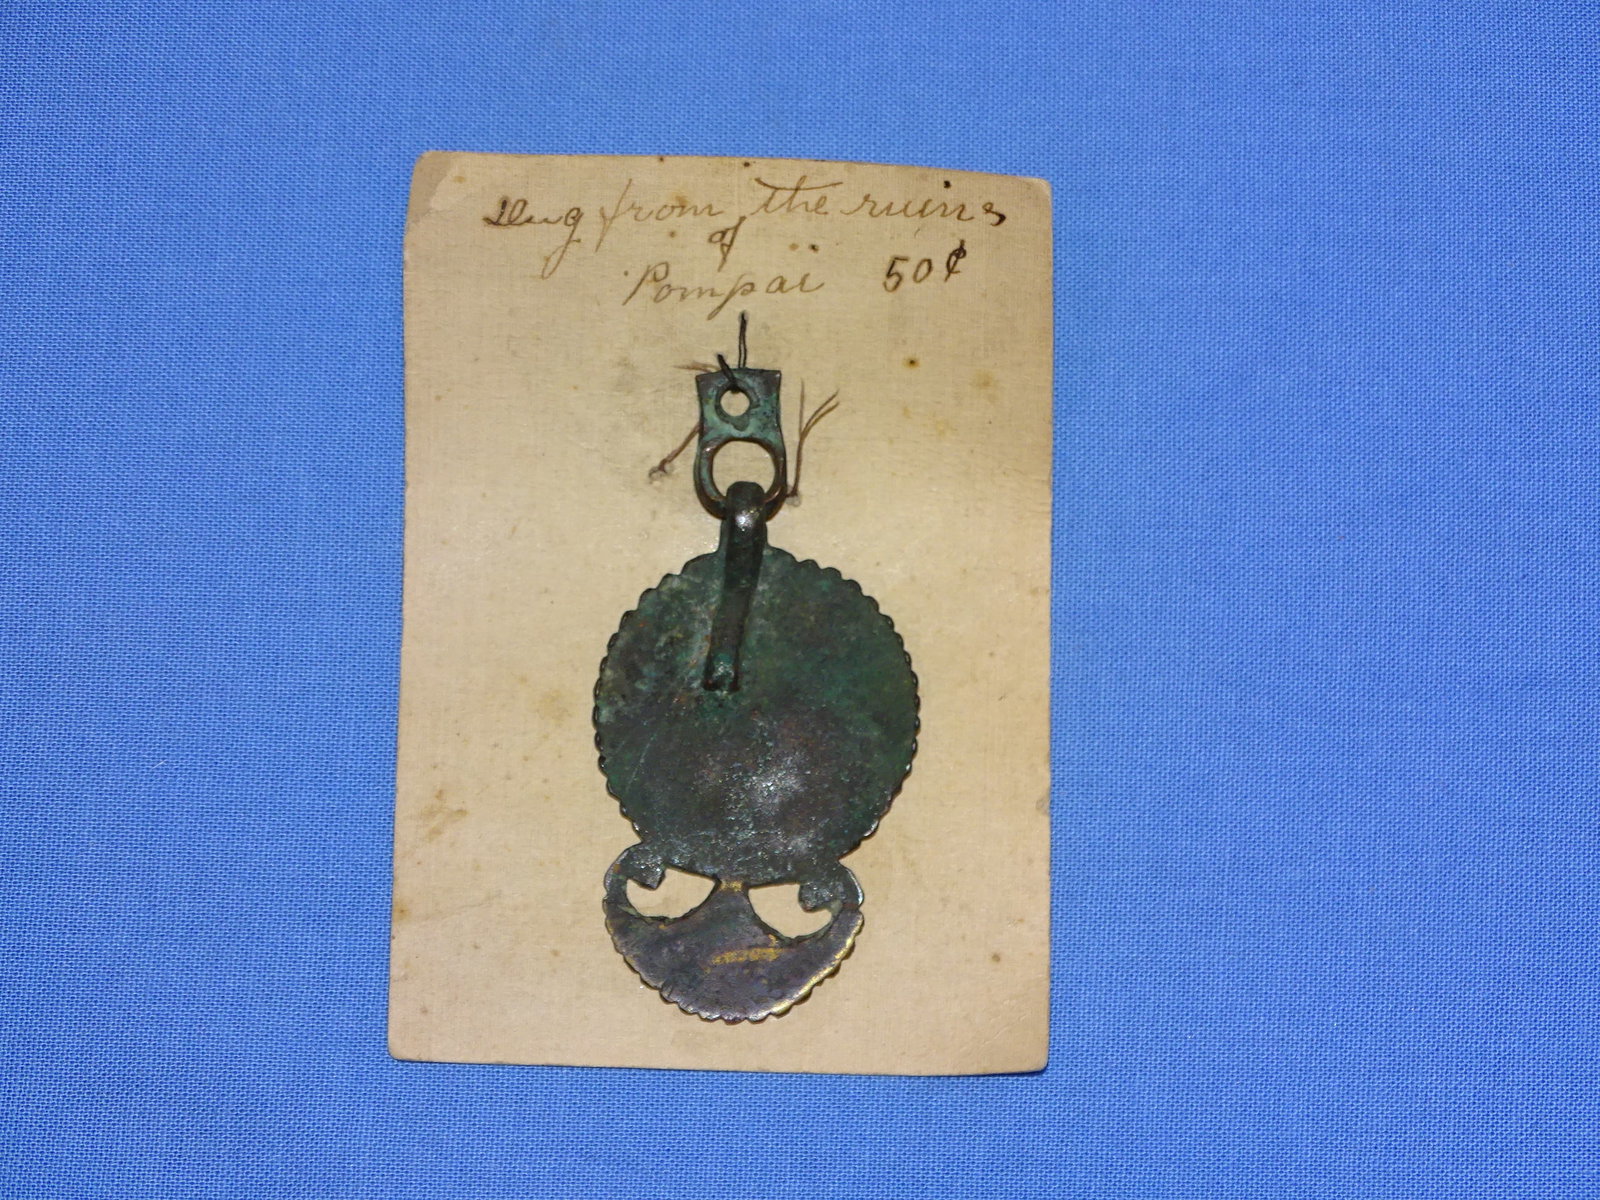 Dug from the ruins
of
Pompaii 50¢